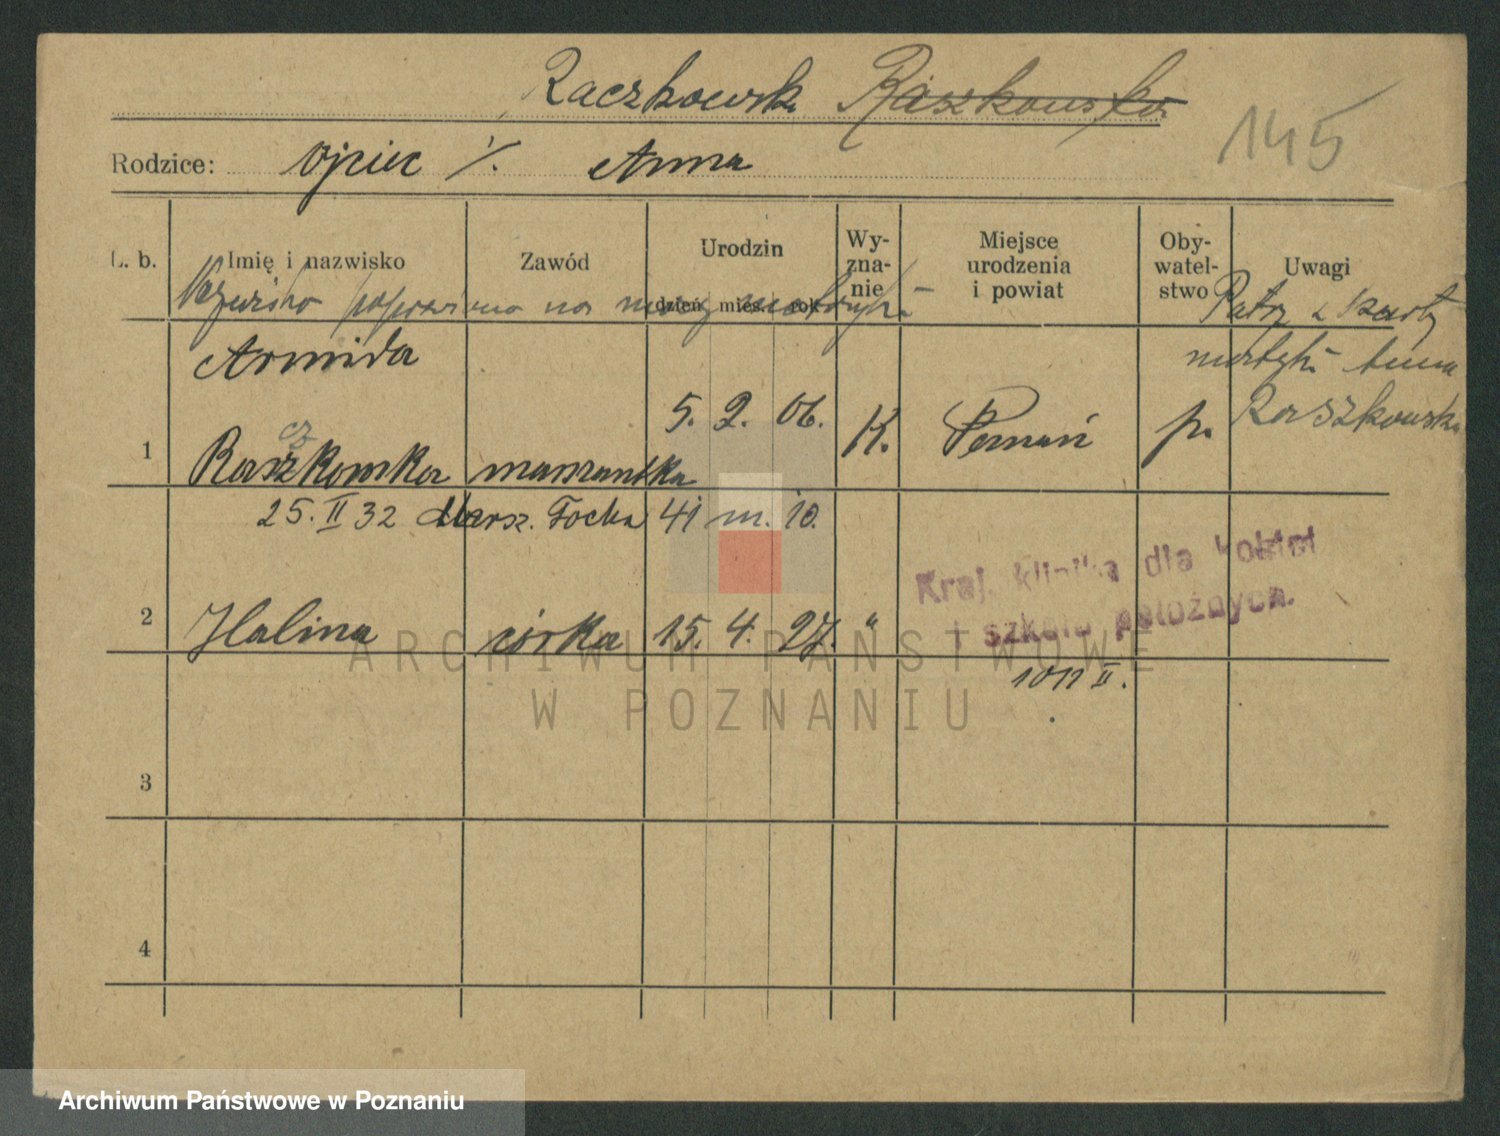 Raczkowsk Raszkowska
145
Rodzice: ojciec /. Anna
L. b. Imię i nazwisko Zawód Urodzin dzień mies. rok Wy-zna-nie Miejsce urodzenia i powiat Oby-watel-stwo Uwagi
Nazwisko poprawiono na mocy metryki
Patrz z karty
matki Anna
Raszkowska
Armida
cz
1 Raszkowska 5. 2. 06. K. Poznań p.
25. II 32 Marsz. Focha 41 m. 10.
Kraj. klinika dla kobiet
i szkoła położnych.
2 Halina córka 15. 4. 27. "
1011 II.
3
4
ARCHIWUM PAŃSTWOWE
W POZNANIU
Archiwum Państwowe w Poznaniu